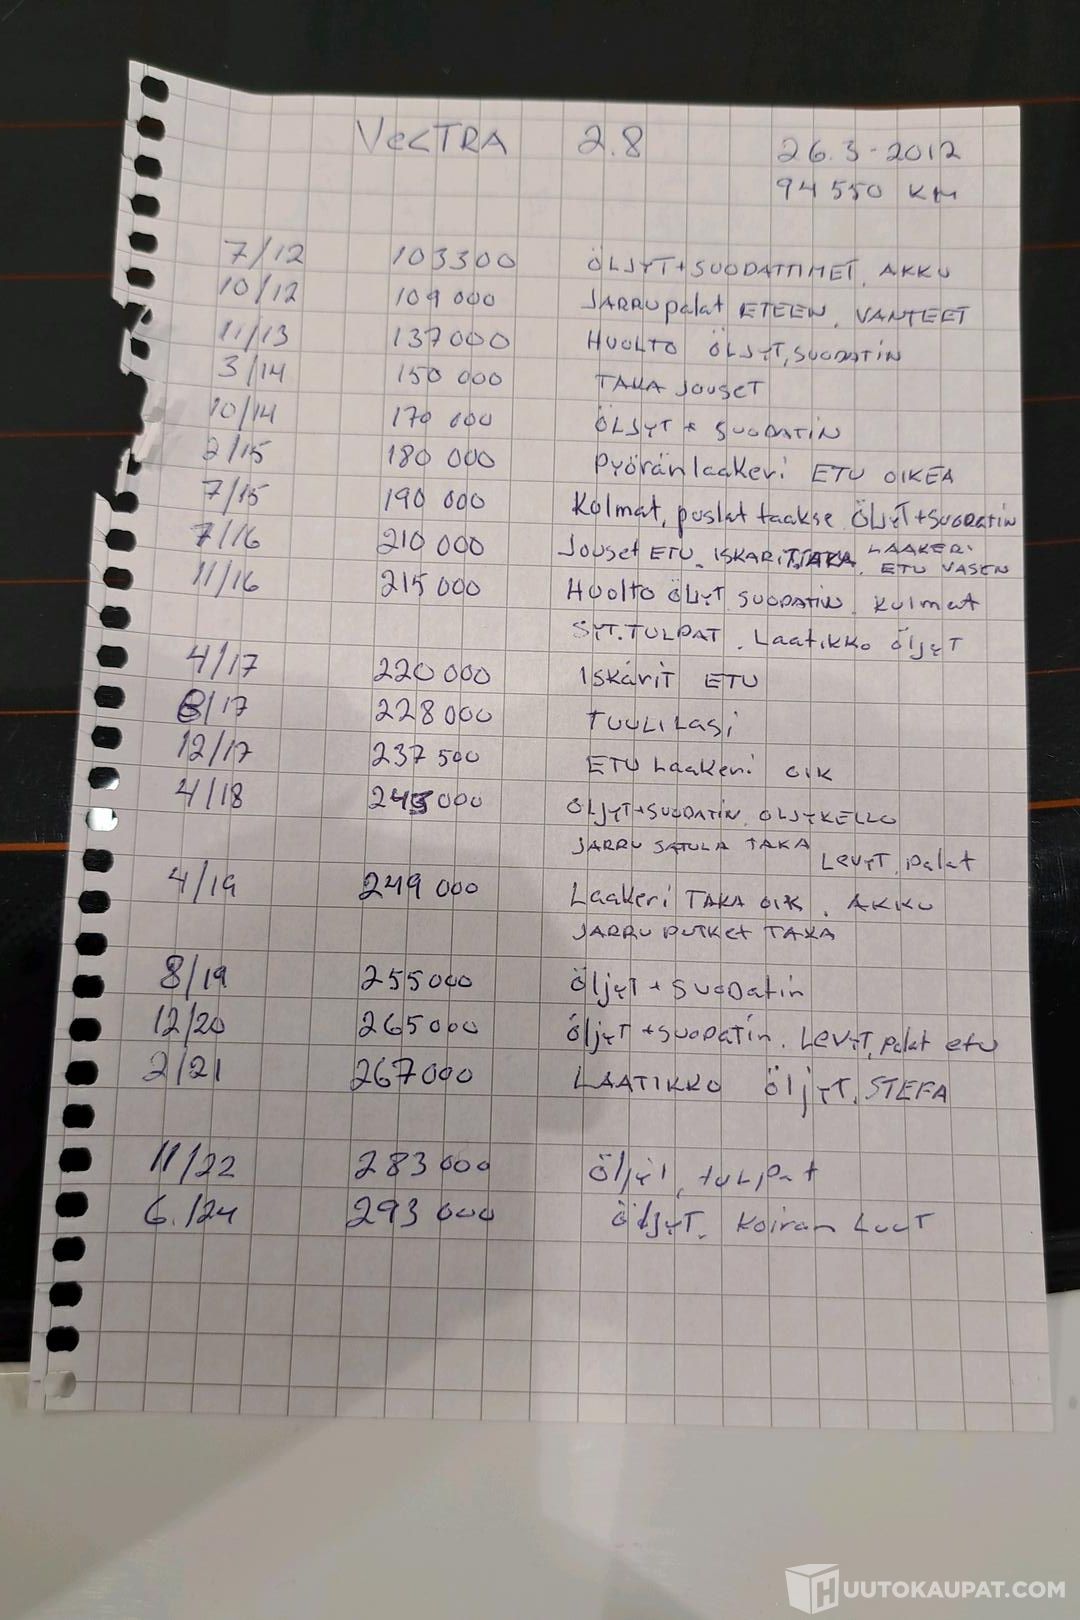 VecTRA 2.8 26.3-2012
94 550 KM
7/12 103300 ÖLJYT+SUODATTIMET, AKKU
10/12 109 000 JARRUpalat ETEEN, VANTEET
11/13 137000 HUOLTO ÖLJYT, SUODATIN
3/14 150 000 TAKA JOUSET
10/14 170 000 ÖLJYT + SUODATIN
2/15 180 000 pyöränlaakeri ETU OIKEA
7/15 190 000 Kulmat, puslat taakse, ÖLJYT+SUODATIN
7/16 210 000 Jouset ETU, ISKARIT TAKA, LAAKERI ETU VASEN
11/16 215 000 Huolto ÖLJYT, SUODATIN, Kulmat
SYT.TULPAT, Laatikko öljyT
4/17 220 000 ISKARIT ETU
8/17 228 000 TUULILASI
12/17 237 500 ETU LAAKERI OIK
4/18 245 000 ÖLJYT+SUODATIN, ÖLJYKELLO
JARRU SATULA TAKA LEVYT, palat
4/19 249 000 Laakeri TAKA OIK, AKKU
JARRU PUTKET TAKA
8/19 255 000 ÖljyT + SUODATIN
12/20 265 000 öljyT + SUODATIN, LEVYT, palat etu
2/21 267 000 LAATIKKO öljyT, STEFA
11/22 283 000 Öljyt, tulpat
6./24 293 000 ÖljyT, Koiran Luut
HUUTOKAUPAT.COM